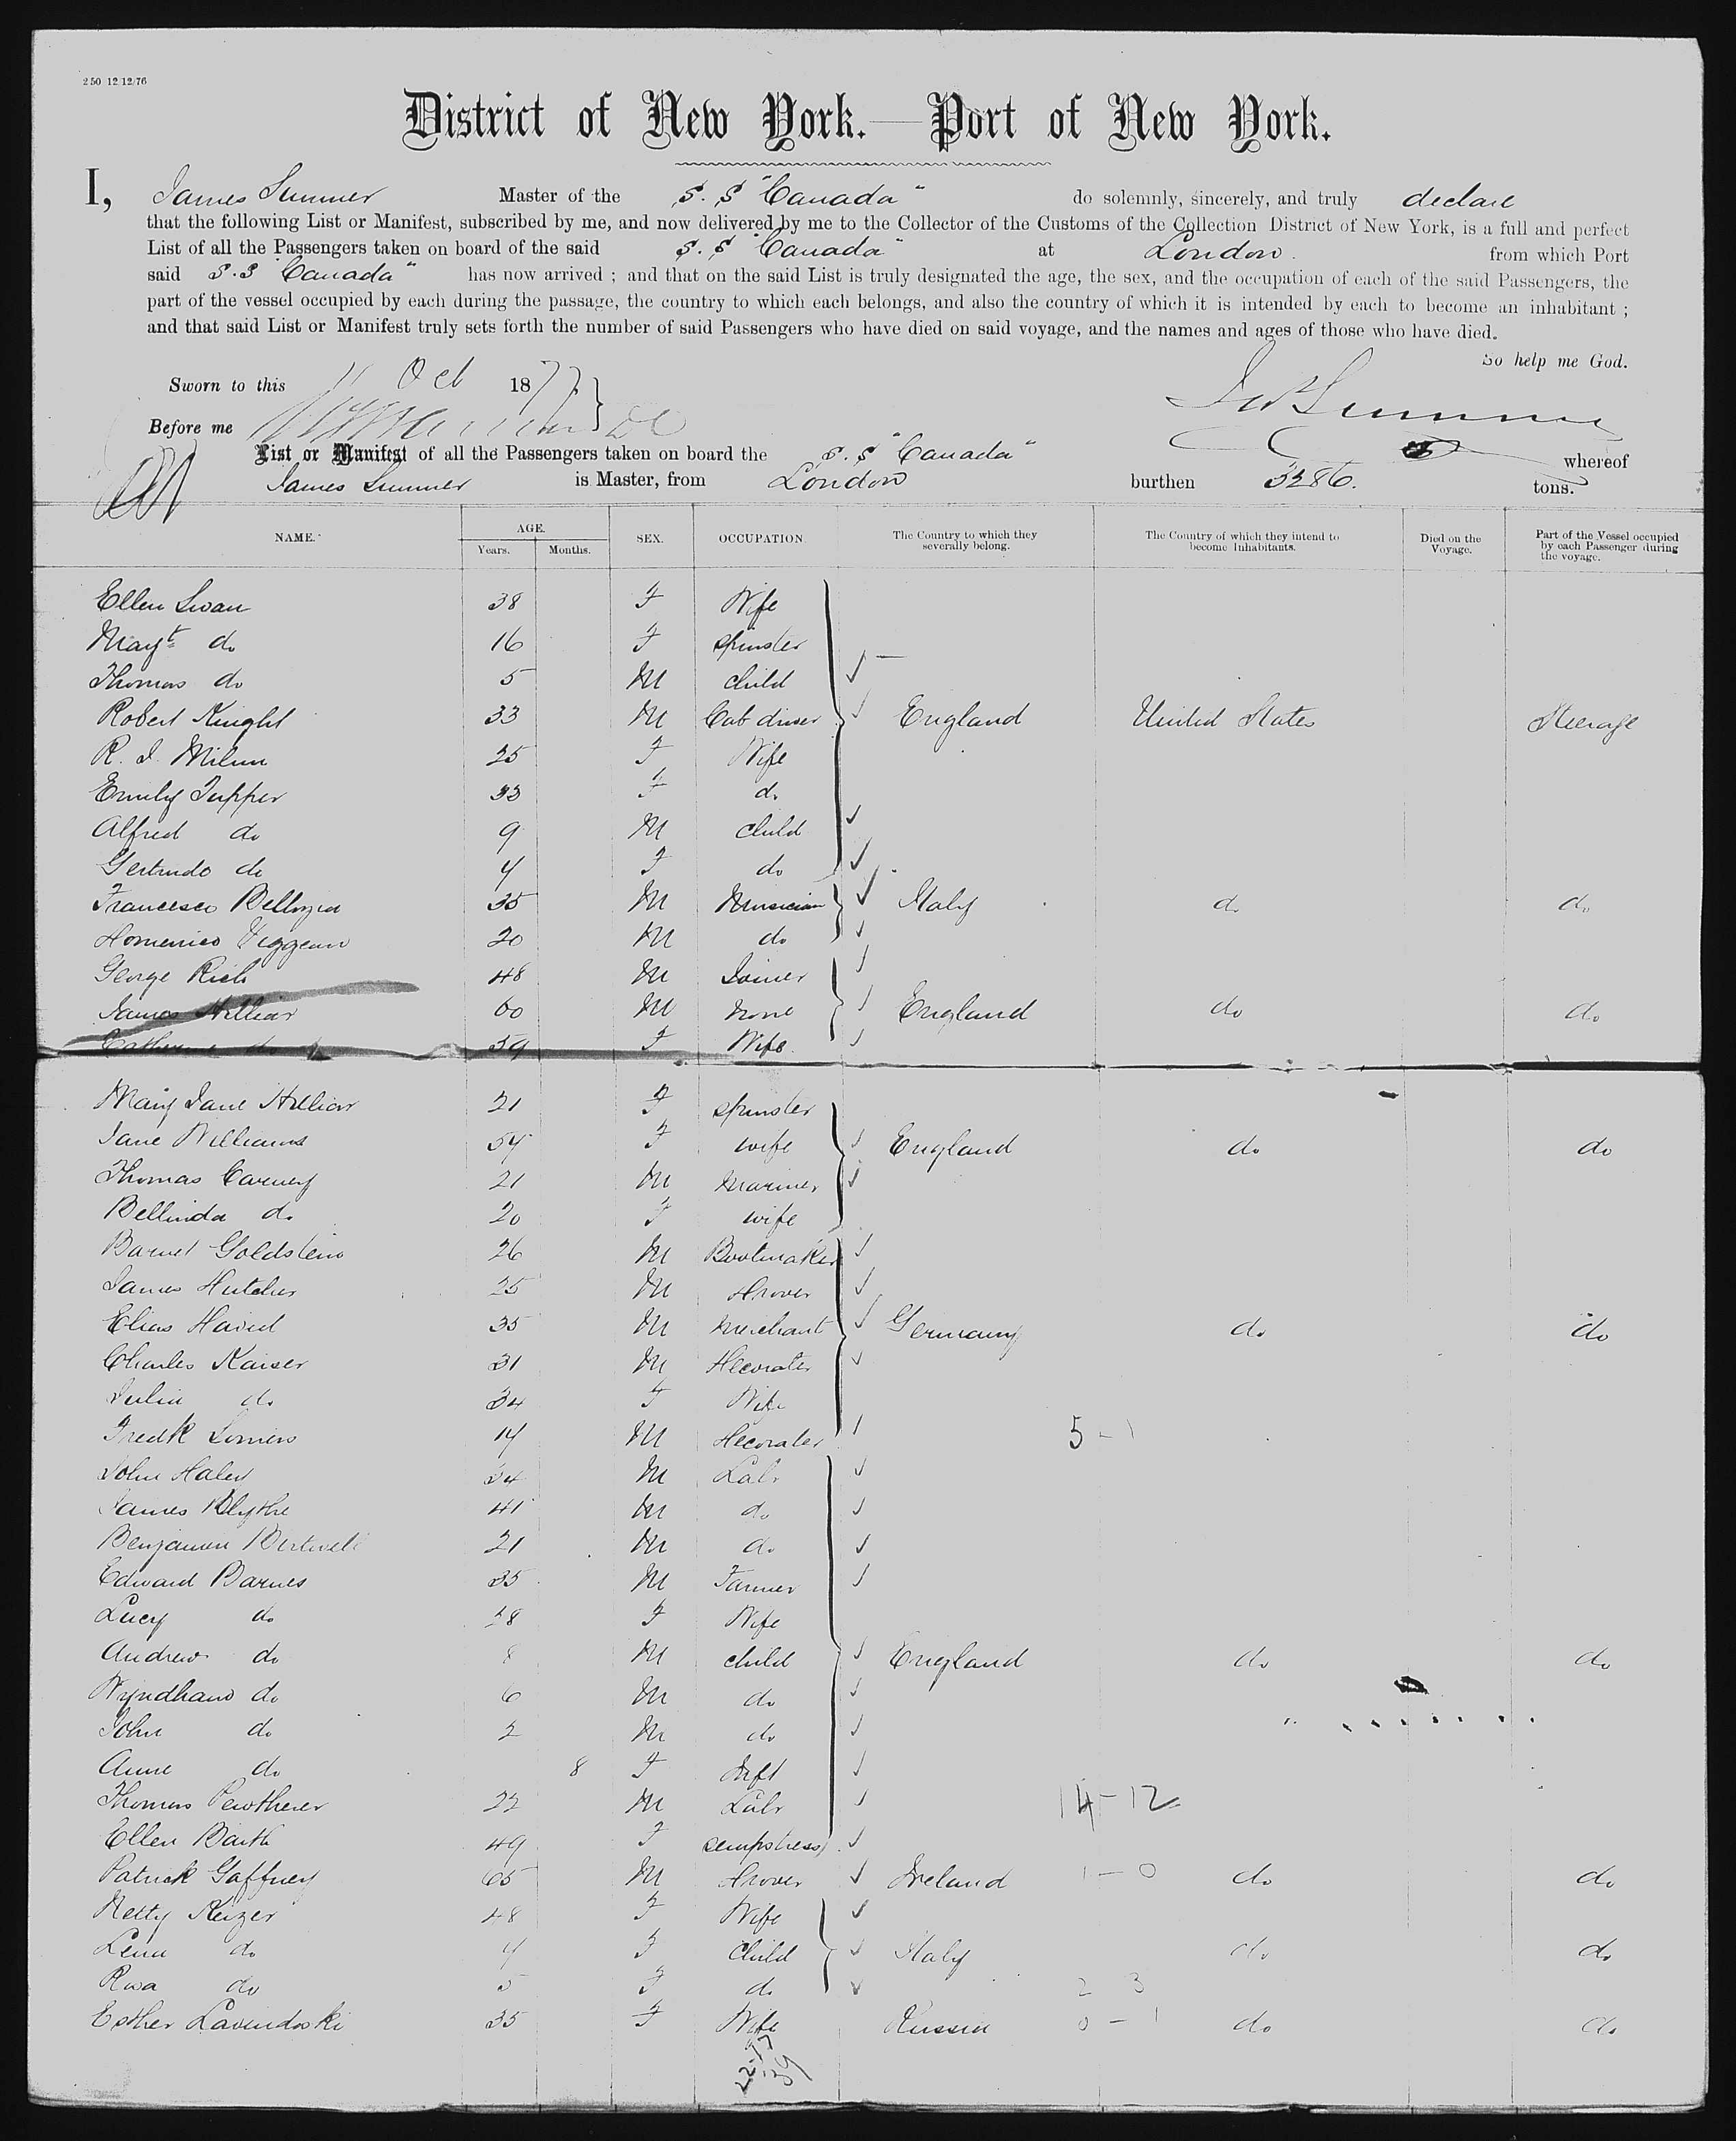 250 12/12/76
District of New York.—Port of New York.
I, James Sumner Master of the S. S "Canada" do solemnly, sincerely, and truly declare
that the following List or Manifest, subscribed by me, and now delivered by me to the Collector of the Customs of the Collection District of New York, is a full and perfect
List of all the Passengers taken on board of the said S. S "Canada" at London. from which Port
said S.S "Canada" has now arrived ; and that on the said List is truly designated the age, the sex, and the occupation of each of the said Passengers, the
part of the vessel occupied by each during the passage, the country to which each belongs, and also the country of which it is intended by each to become an inhabitant ;
and that said List or Manifest truly sets forth the number of said Passengers who have died on said voyage, and the names and ages of those who have died.
So help me God.
Sworn to this 11 Oct 1877
Jas Sumner
Before me
List or Manifest of all the Passengers taken on board the S. S "Canada" whereof
James Sumner is Master, from London burthen 3286. tons.
NAME. AGE. Years. Months. SEX. OCCUPATION. The Country to which they severally belong. The Country of which they intend to become Inhabitants. Died on the Voyage. Part of the Vessel occupied by each Passenger during the voyage.
Ellen Swan 38 F Wife
Magt do 16 F spinster
Thomas do 5 M child
Robert Knight 33 M Cab driver England United States Steerage
R. J. Milun 25 F Wife
Emily Tupper 33 F do
Alfred do 9 M child
Gertrude do 4 F do
Francesco 35 M Musician Italy do do
Domenico Viggeano 20 M do
George Rich 48 M Joiner
James Hilliar 60 M None England do do
Catherine do 59 F Wife
Mary Jane Hilliar 21 F spinster
Jane Williams 54 F wife England do do
Thomas Carney 21 M Mariner
Bellinda do 20 F wife
Barnet Goldstein 26 M Bootmaker
James Hutcher 25 M Drover
Elias David 35 M Merchant Germany do do
Charles Kaiser 31 M Decorater
Julia do 34 F Wife
Fredk 14 M Decorater 5 - 1
John Haley 34 M Labr
James Blythe 41 M do
Benjamin Birtwell 21 M do
Edward Barnes 35 M Farmer
Lucy do 28 F Wife
Andrew do 8 M child England do do
Wyndham do 6 M do
John do 2 M do
Anne do 8 F Inft
Thomas Pewtherer 22 M Labr 14 - 12
Ellen Barth 49 F sempstress
Patrick Gaffney 65 M Drover Ireland 1 - 0 do do
Netty Keizer 48 F Wife
Lena do 4 F Child Italy do do
Rosa do 5 F do 2 3
Esther Lavendoski 35 F Wife Russia 0 - 1 do do
22-17
39